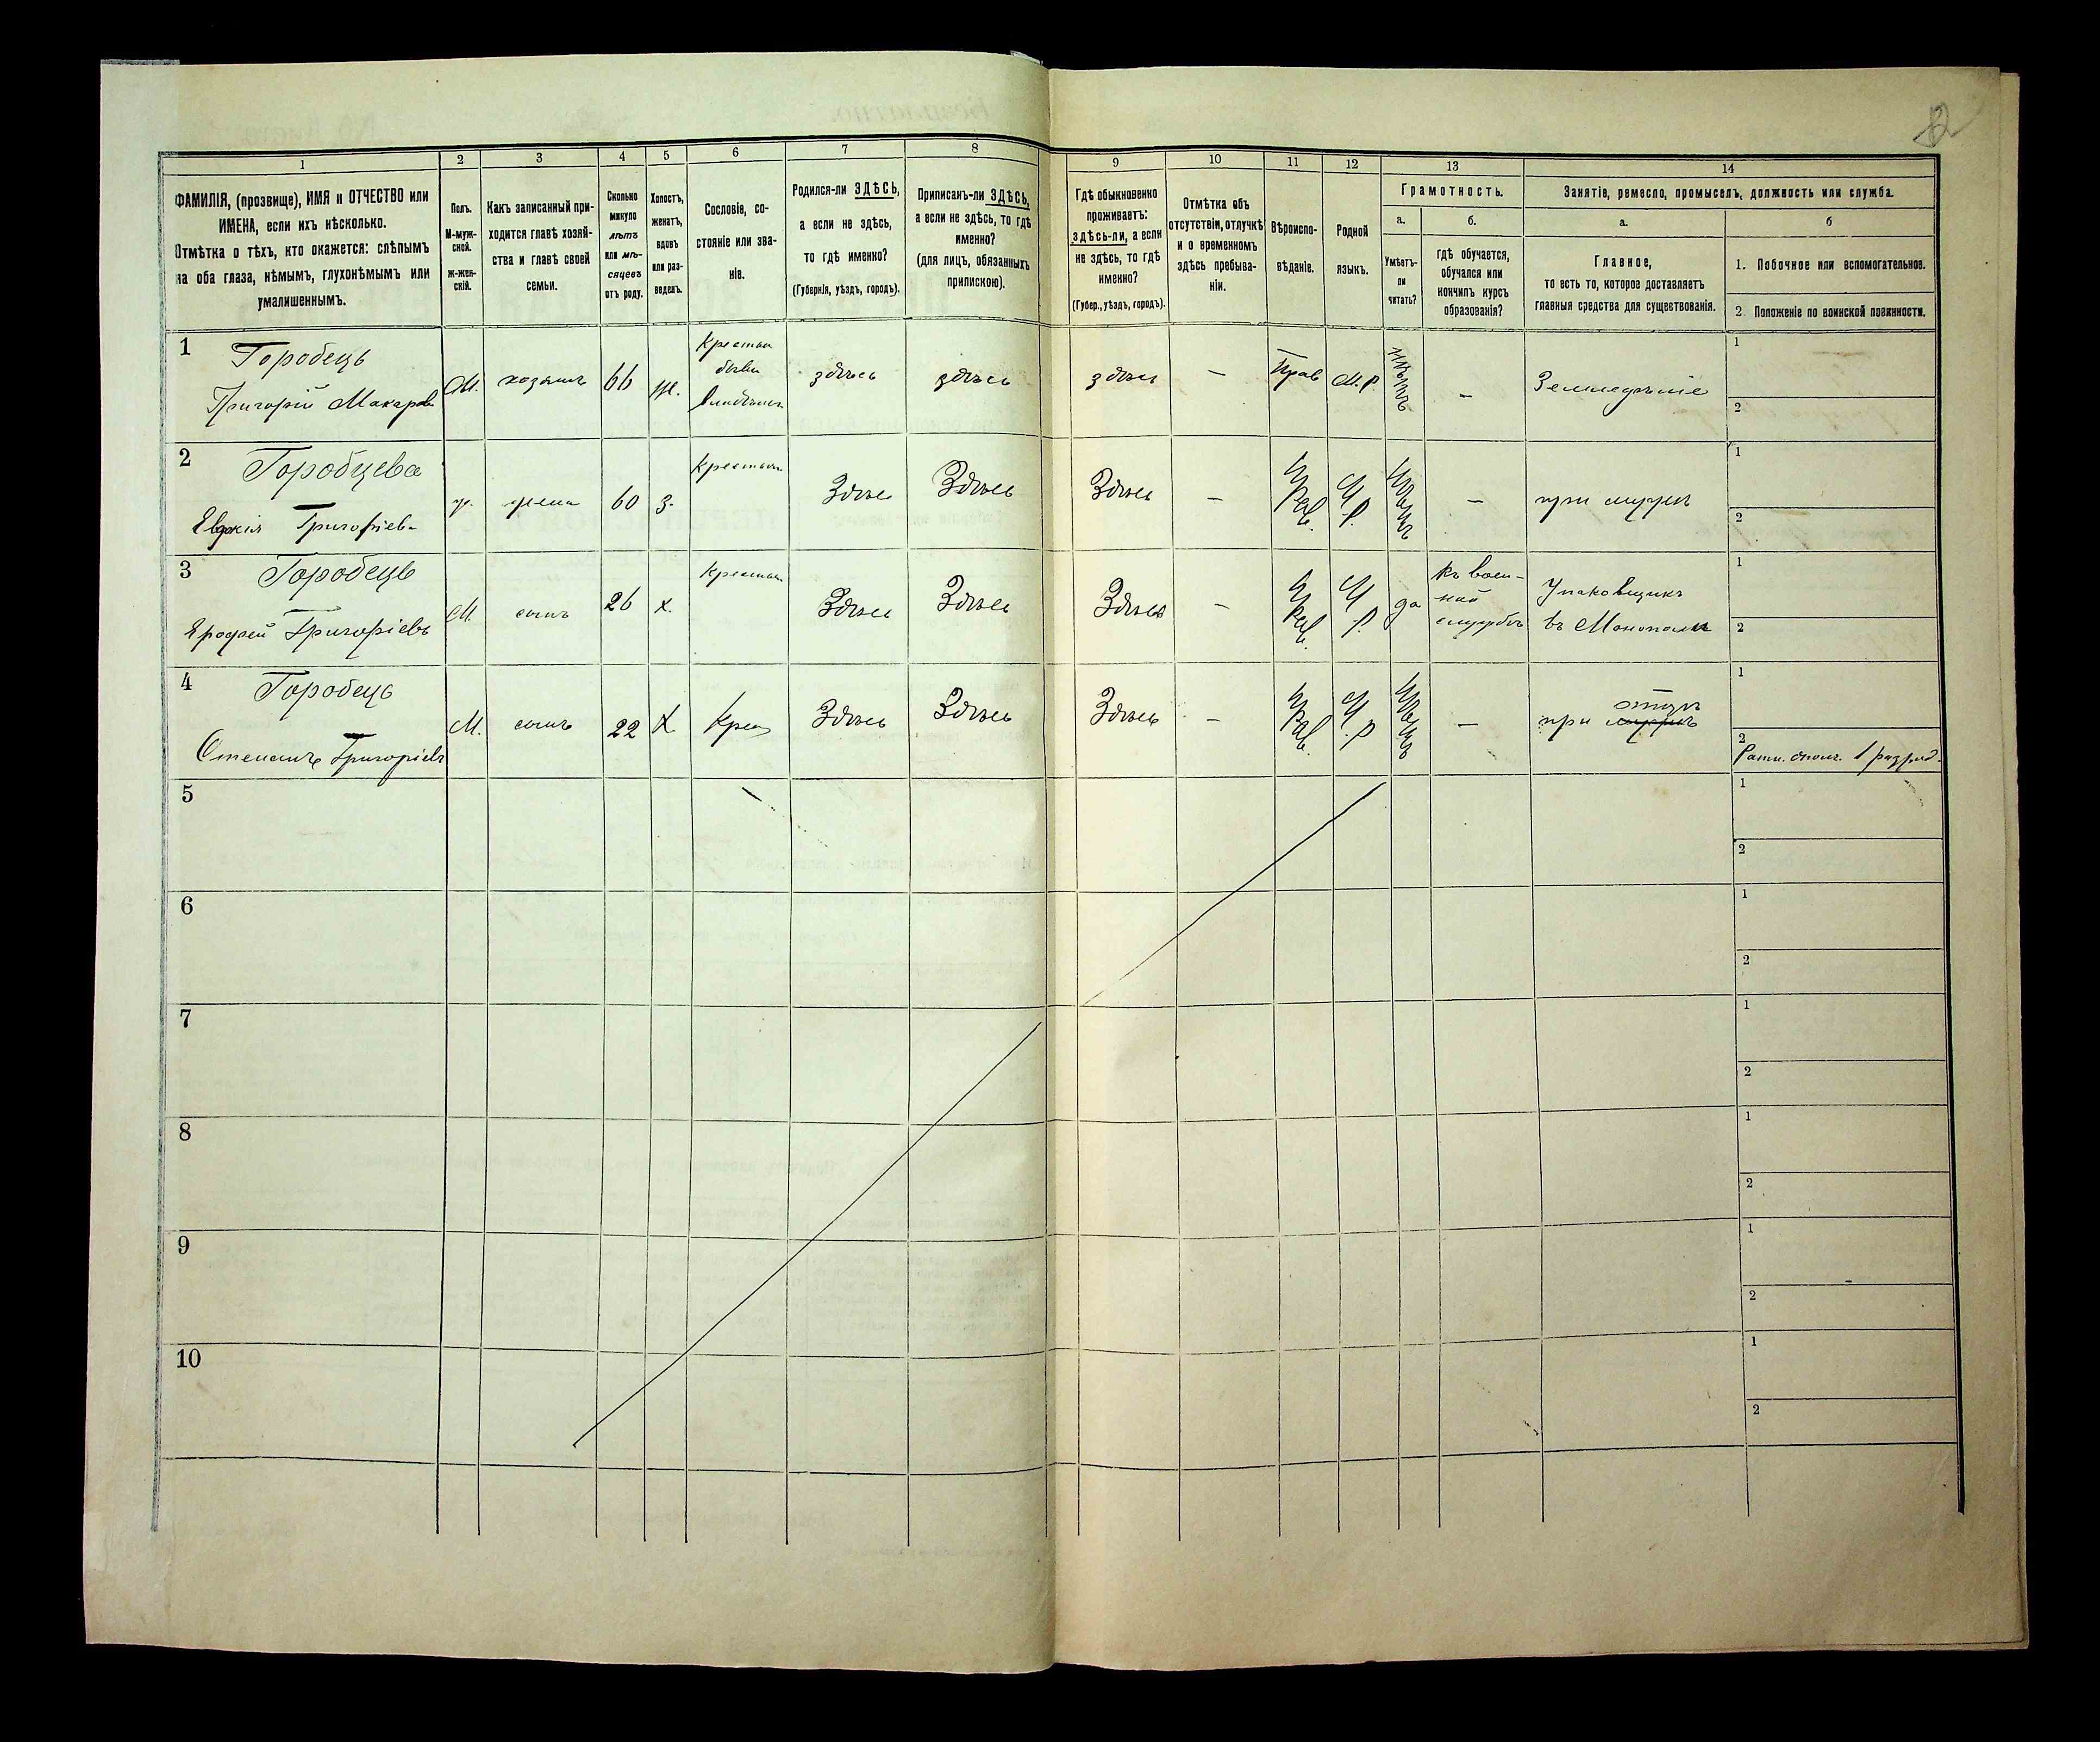 1 2 3 4 5 6 7 8 9 10 11 12 13 14
ФАМИЛІЯ, (прозвище), ИМЯ и ОТЧЕСТВО или
ИМЕНА, если ихъ нѣсколько.
Отмѣтка о тѣхъ, кто окажется: слѣпымъ
на оба глаза, нѣмымъ, глухонѣмымъ или
умалишеннымъ.
Полъ.
М-муж-
ской.
ж-жен-
скій.
Какъ записанный при-
ходится главѣ хозяй-
ства и главѣ своей
семьи.
Сколько
минуло
лѣтъ
или мѣ-
сяцевъ
отъ роду.
Холостъ,
женатъ,
вдовъ
или раз-
веденъ.
Сословіе, со-
стояніе или зва-
ніе.
Родился-ли ЗДѢСЬ,
а если не здѣсь,
то гдѣ именно?
(Губернія, уѣздъ, городъ).
Приписанъ-ли ЗДѢСЬ,
а если не здѣсь, то гдѣ
именно?
(для лицъ, обязанныхъ
припискою).
Гдѣ обыкновенно
проживаетъ:
здѣсь-ли, а если
не здѣсь, то гдѣ
именно?
(Губер., уѣздъ, городъ).
Отмѣтка объ
отсутствіи, отлучкѣ
и о временномъ
здѣсь пребыва-
ніи.
Вѣроиспо-
вѣданіе.
Родной
языкъ.
Грамотность.
а.
Умѣетъ-
ли
читать?
б.
гдѣ обучается,
обучался или
кончилъ курсъ
образованія?
Занятіе, ремесло, промыселъ, должность или служба.
а.
Главное,
то есть то, которое доставляетъ
главныя средства для существованія.
б
1. Побочное или вспомогательное.
2. Положеніе по воинской повинности.
1
Городець
Григорій Макаров
М.
хозяинъ
66
ж.
Крестьян
бывш
здѣсь
здѣсь
здѣсь
—
Прав
М. Р.
нѣтъ
—
Земледѣліе
1
2
2
Городцева
Евдокія Григоріев-
ж.
жена
60
з.
Крестьян
Здѣсь
Здѣсь
Здѣсь
—
Прав.
М. Р.
Нѣтъ
—
при мужѣ
1
2
3
Городець
Ерофей Григоріевъ
М.
сынъ
26
х.
Крестьян
Здѣсь
Здѣсь
Здѣсь
—
Прав.
М. Р.
да
въ воен-
ной
службѣ
Упаковщикъ
въ Монополіи
1
2
4
Городець
Степанъ Григоріевъ
М.
сынъ
22
Х
Крес
Здѣсь
Здѣсь
Здѣсь
—
Прав.
М. Р
Нѣтъ
—
отцѣ
при мужѣ
1
2
Ратн. опол. 1 разряд.
5
1
2
6
1
2
7
1
2
8
1
2
9
1
2
10
1
2